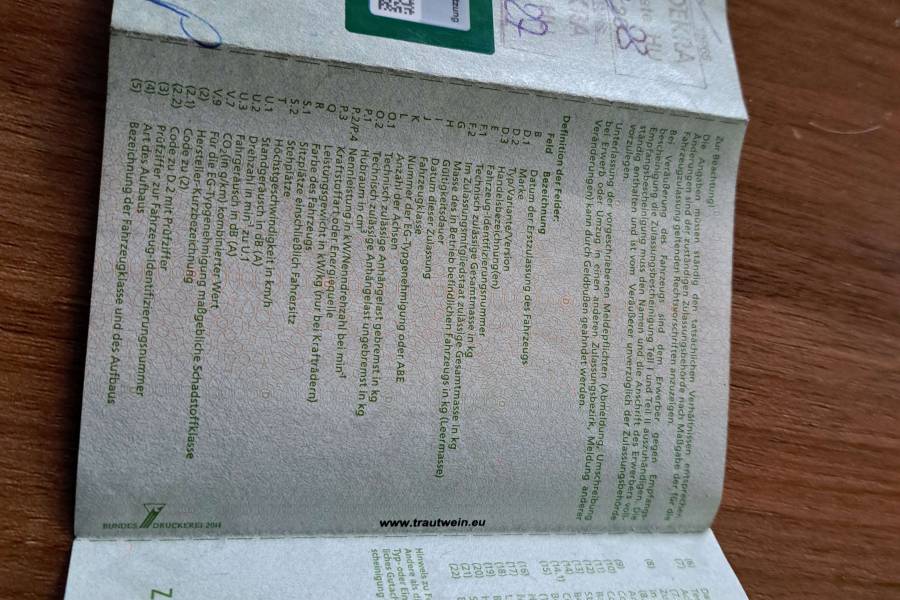 Zur Beachtung!
Die Angaben müssen ständig den tatsächlichen Verhältnissen entsprechen.
Änderungen sind der zuständigen Zulassungsbehörde nach Maßgabe der für die
Fahrzeugzulassung geltenden Rechtsvorschriften anzuzeigen.
Bei Veräußerung des Fahrzeugs sind dem Erwerber gegen Empfangs-
bescheinigung die Zulassungsbescheinigung Teil I und Teil II auszuhändigen. Die
Empfangsbescheinigung muss den Namen und die Anschrift des Erwerbers voll-
ständig enthalten und ist vom Veräußerer unverzüglich der Zulassungsbehörde
vorzulegen.
Unterlassung der vorgeschriebenen Meldepflichten (Abmeldung, Umschreibung
bei Erwerb oder Umzug in einen anderen Zulassungsbezirk, Meldung anderer
Veränderungen) kann durch Geldbußen geahndet werden.
Definition der Felder:
Feld Bezeichnung
B Datum der Erstzulassung des Fahrzeugs
D.1 Marke
D.2 Typ/Variante/Version
D.3 Handelsbezeichnung(en)
E Fahrzeug-Identifizierungsnummer
F.1 Technisch zulässige Gesamtmasse in kg
F.2 Im Zulassungsmitgliedstaat zulässige Gesamtmasse in kg
G Masse des in Betrieb befindlichen Fahrzeugs in kg (Leermasse)
H Gültigkeitsdauer
I Datum dieser Zulassung
J Fahrzeugklasse
K Nummer der EG-Typgenehmigung oder ABE
L Anzahl der Achsen
O.1 Technisch zulässige Anhängelast gebremst in kg
O.2 Technisch zulässige Anhängelast ungebremst in kg
P.1 Hubraum in cm³
P.2/P.4 Nennleistung in kW/Nenndrehzahl bei min⁻¹
P.3 Kraftstoffart oder Energiequelle
Q Leistungsgewicht in kW/kg (nur bei Krafträdern)
R Farbe des Fahrzeugs
S.1 Sitzplätze einschließlich Fahrersitz
S.2 Stehplätze
T Höchstgeschwindigkeit in km/h
U.1 Standgeräusch in dB (A)
U.2 Drehzahl in min⁻¹ zu U.1
U.3 Fahrgeräusch in dB (A)
V.7 CO₂ (in g/km) kombinierter Wert
V.9 Für die EG-Typgenehmigung maßgebliche Schadstoffklasse
(2) Hersteller-Kurzbezeichnung
(2.1) Code zu (2)
(2.2) Code zu D.2 mit Prüfziffer
(3) Prüfziffer zur Fahrzeug-Identifizierungsnummer
(4) Art des Aufbaus
(5) Bezeichnung der Fahrzeugklasse und des Aufbaus
BUNDESDRUCKEREI
www.trautwein.eu
DEKRA
(6)
(7)
(8)
(9)
(10)
(11)
(12)
(13)
(14)
(14.1)
(15)
(16)
(17)
(18)
(19)
(20)
(21)
(22)
Hinweis zu
Andere als
Typ- oder
liches
scheinigung